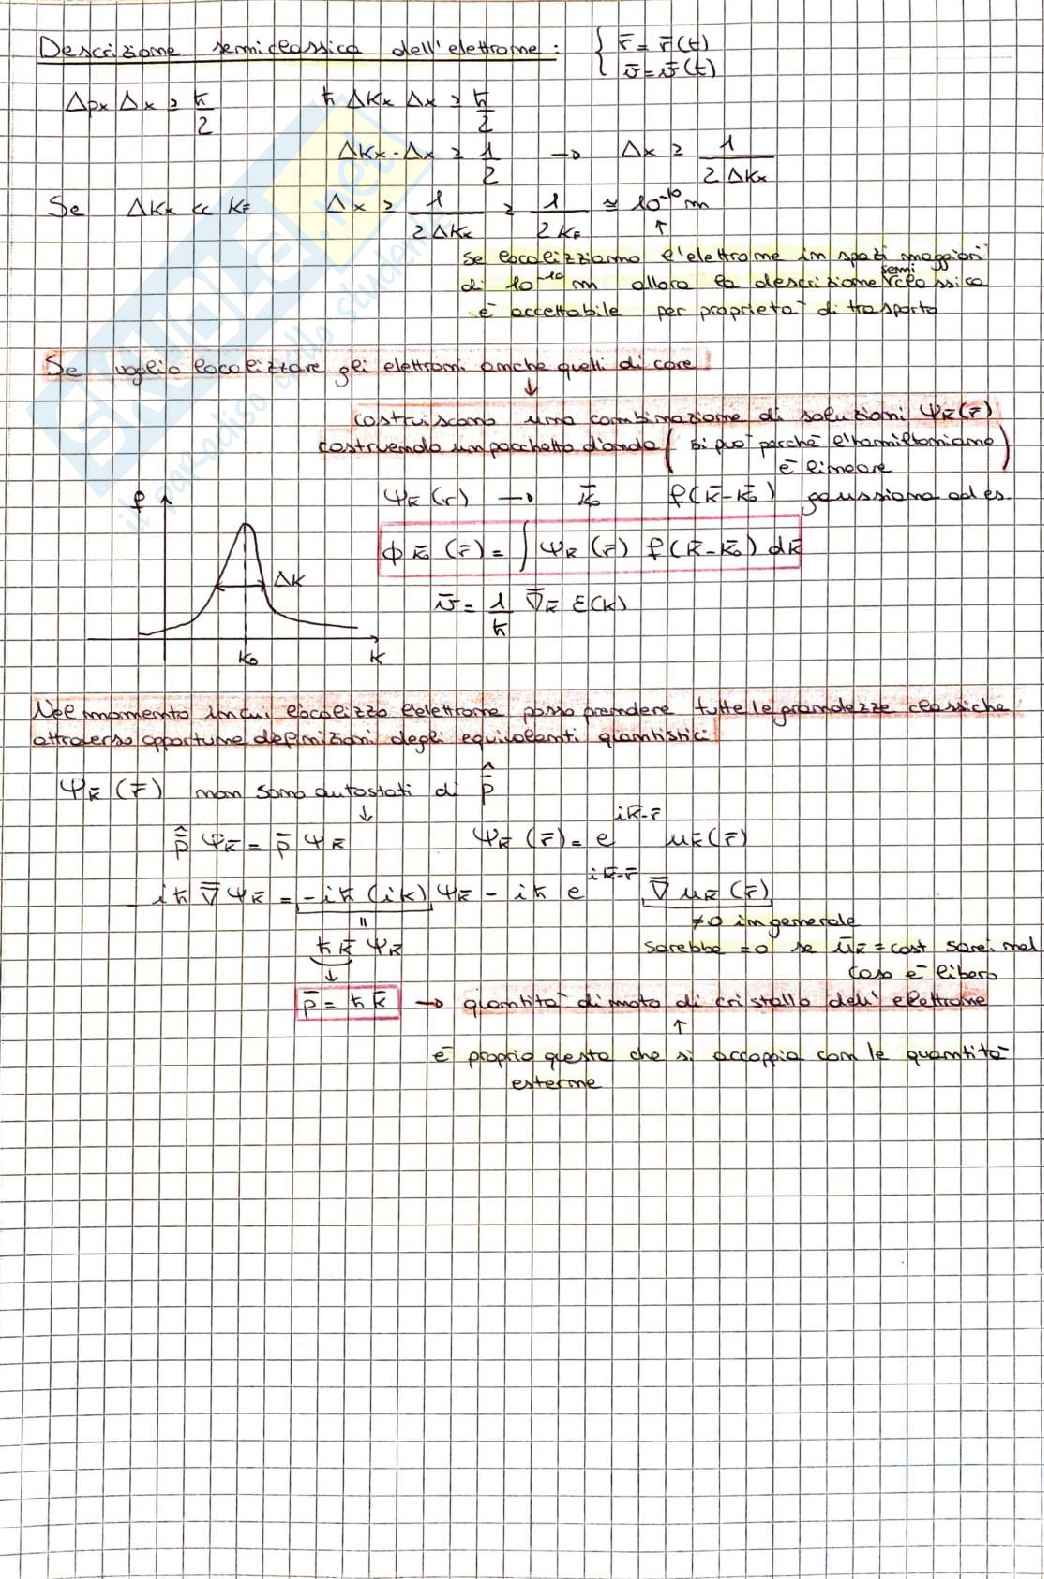 Descrizione semiclassica dell'elettrone: { r̄ = r̄(t)
v̄ = v̄(t)
Δpx Δx ≥ ℏ/2 ℏ ΔKx Δx ≥ ℏ/2
ΔKx · Δx ≥ 1/2 → Δx ≥ 1/(2 ΔKx)
Se ΔKx << KF Δx ≥ 1/(2ΔKx) ≥ 1/(2KF) ≅ 10⁻¹⁰ m
↑
se localizziamo l'elettrone in spazi maggiori
di 10⁻¹⁰ m allora la descrizione semiclassica
è accettabile per proprietà di trasporto
Se voglio localizzare gli elettroni anche quelli di core
↓
costruiscono una combinazione di soluzioni ψk̄(r̄)
costruendo un pacchetto d'onda (si può perché l'hamiltoniano
è lineare)
ψk̄(r) → k̄₀ f(k̄-k̄₀) gaussiana ad es.
f
ϕk̄₀(r̄) = ∫ ψk̄(r̄) f(k̄-k̄₀) dk̄
ΔK
v̄ = 1/ℏ ∇̄k̄ ε(k)
k₀ K
Nel momento in cui localizzo l'elettrone posso prendere tutte le grandezze classiche
attraverso opportune definizioni degli equivalenti quantistici
ψk̄(r̄) non sono autostati di p̄̂
↓
p̄̂ ψk̄ = p̄ ψk̄ ψk̄(r̄) = e^{ik̄·r̄} uk̄(r̄)
iℏ ∇̄ψk̄ = -iℏ(ik) ψk̄ - iℏ e^{ik̄·r̄} ∇̄uk̄(r̄)
" ≠0 in generale
ℏk̄ ψk̄ sarebbe =0 se ūk̄ = cost sarei nel
↓ caso e⁻ libero
p̄ = ℏk̄ → quantità di moto di cristallo dell'elettrone
↑
è proprio questa che si accoppia con le quantità
esterne